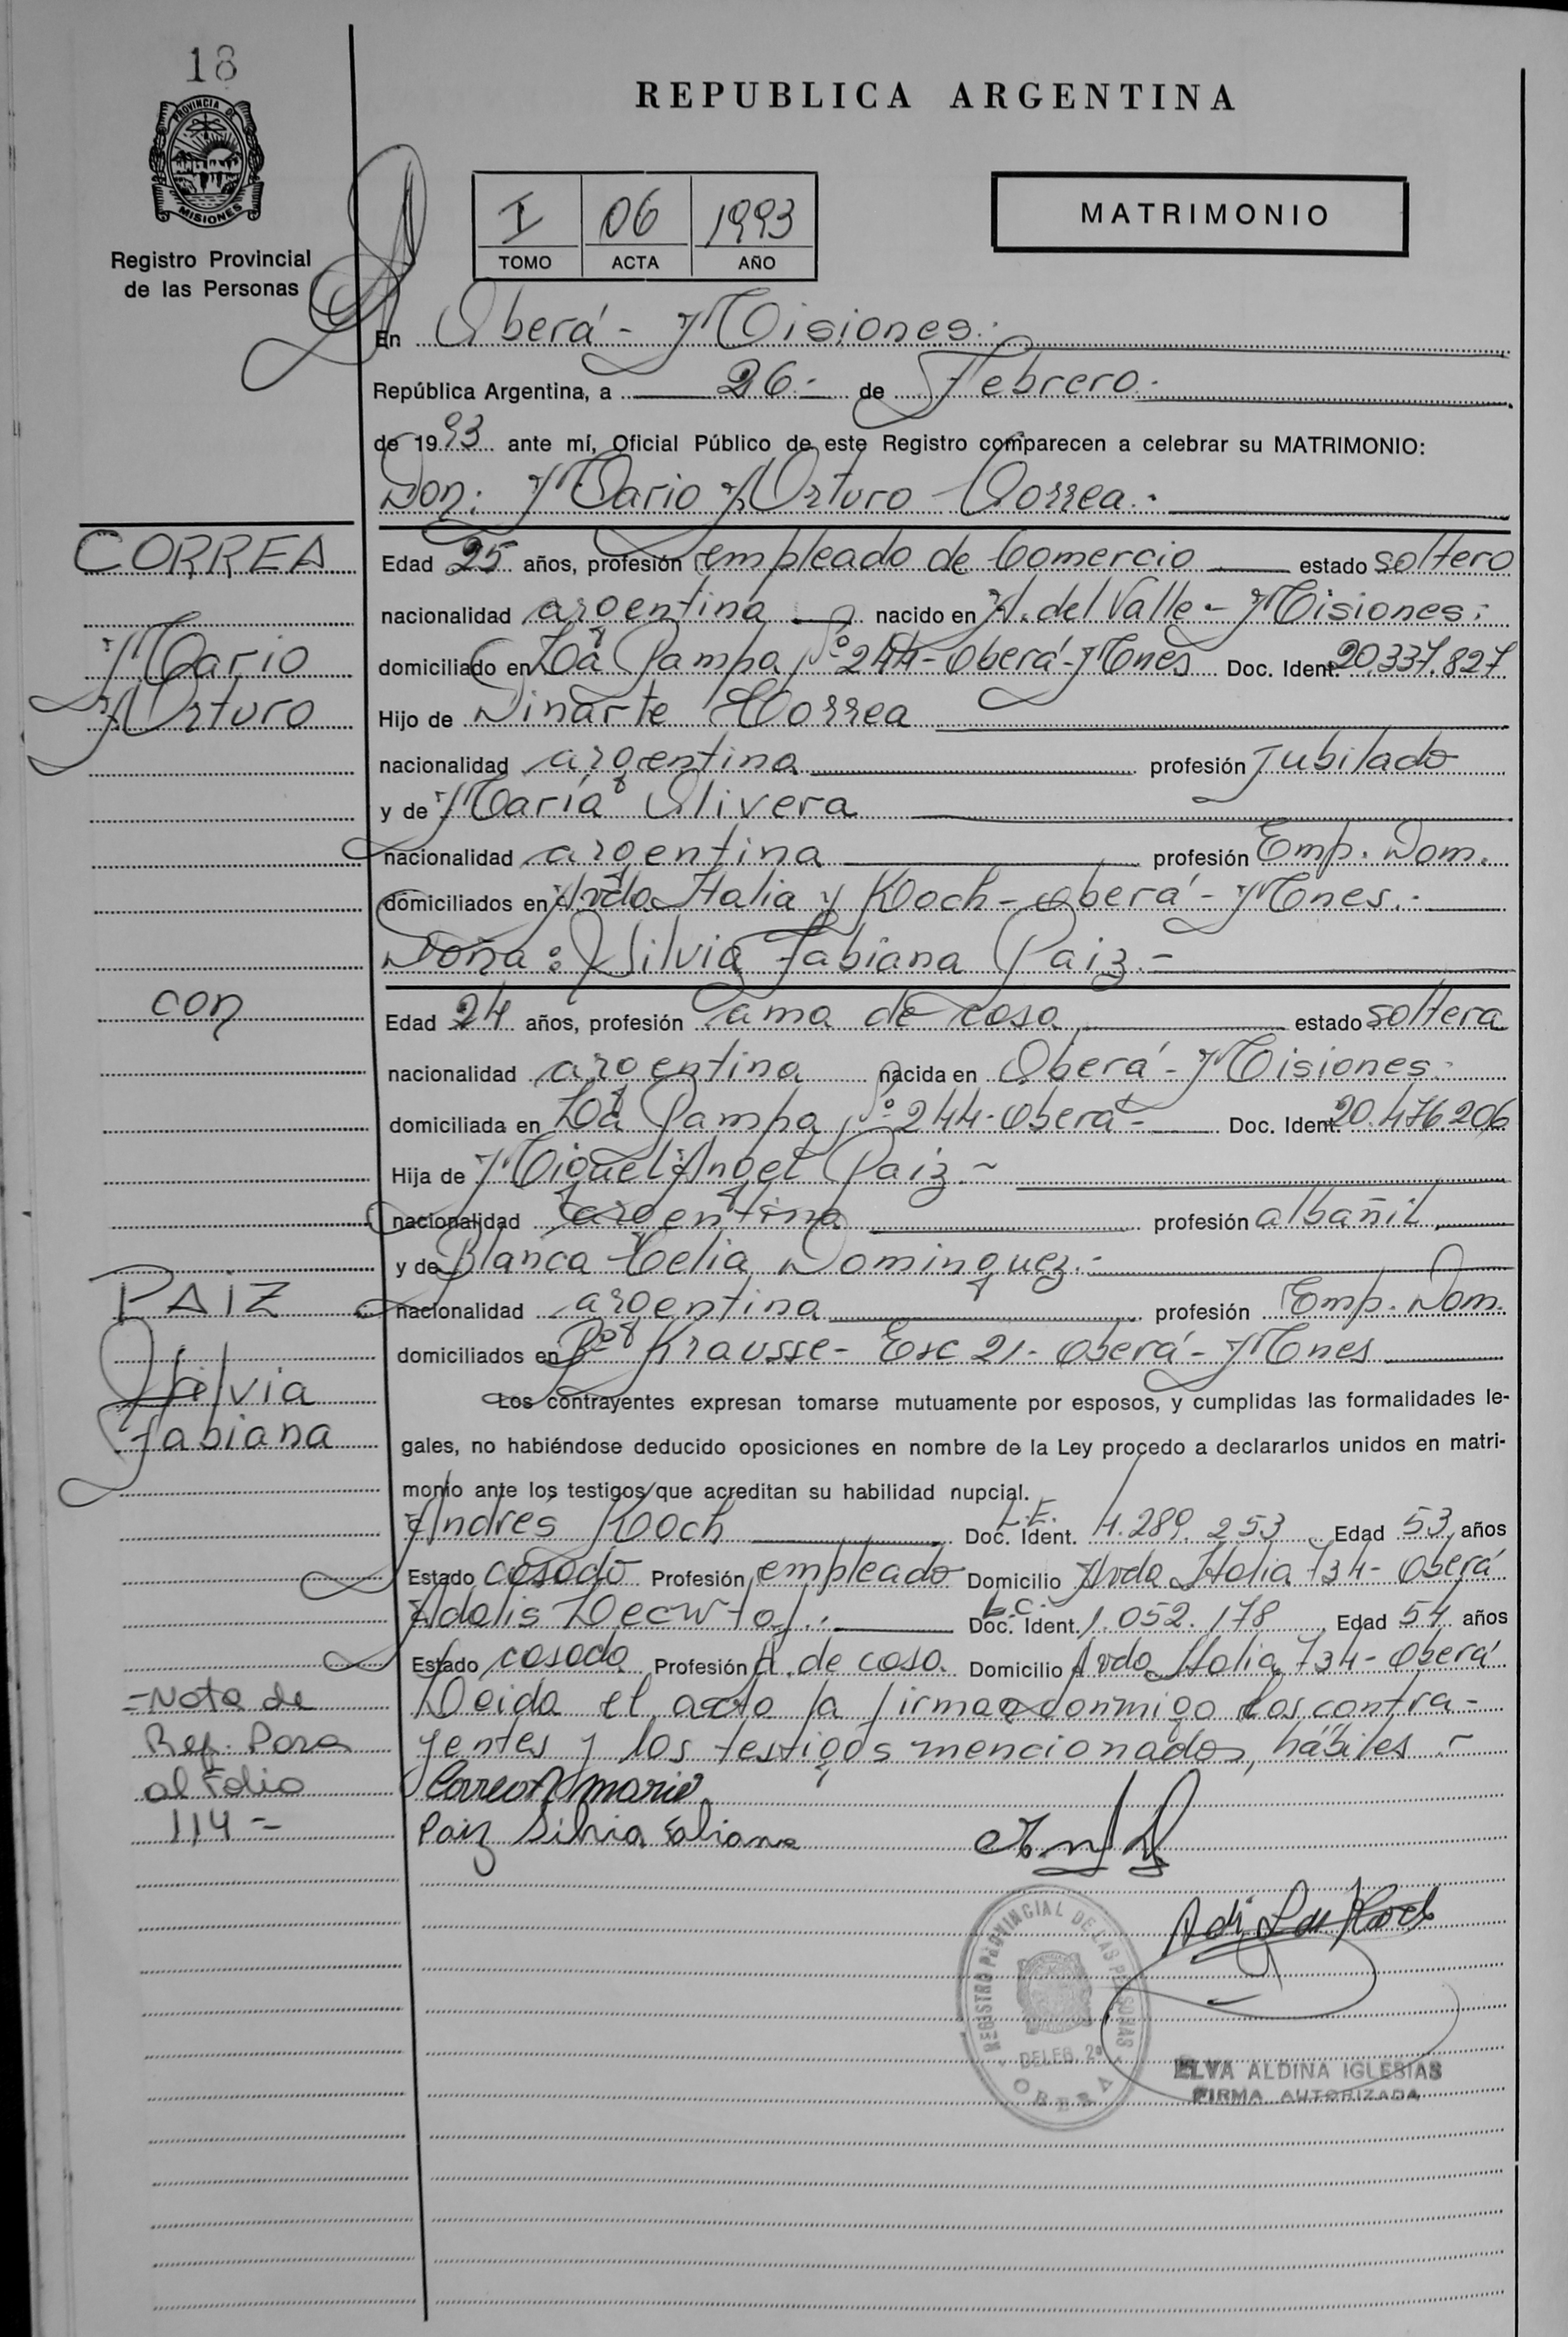 18
REPUBLICA ARGENTINA
PROVINCIA DE
MISIONES
Registro Provincial
de las Personas
I 06 1993
TOMO ACTA AÑO
MATRIMONIO
En Oberá - Misiones.-
República Argentina, a 26.- de Febrero.-
de 1993 ante mí, Oficial Público de este Registro comparecen a celebrar su MATRIMONIO:
Don: Mario Arturo Correa.-
CORREA
Mario
Arturo
Edad 25 años, profesión empleado de Comercio estado soltero
nacionalidad argentina nacido en A. del Valle - Misiones.
domiciliado en La Pampa Nº 244 - Oberá - Mnes Doc. Ident. 20.337.827
Hijo de Dinarte Correa
nacionalidad argentina profesión jubilado
y de María Olivera
nacionalidad argentina profesión Emp. Dom.
domiciliados en Avda Italia y Koch - Oberá - Mnes.-
Doña: Silvia Fabiana Paiz.-
con
Edad 24 años, profesión ama de casa estado soltera
nacionalidad argentina nacida en Oberá - Misiones.-
domiciliada en La Pampa Nº 244 - Oberá - Doc. Ident. 20.476.206
Hija de Miguel Angel Paiz -
nacionalidad argentina profesión albañil
y de Blanca Celia Dominguez.-
PAIZ
Silvia
Fabiana
nacionalidad argentina profesión Emp. Dom.
domiciliados en Bº Krausse - Esc 21 - Oberá - Mnes
Los contrayentes expresan tomarse mutuamente por esposos, y cumplidas las formalidades le-
gales, no habiéndose deducido oposiciones en nombre de la Ley procedo a declararlos unidos en matri-
monio ante los testigos que acreditan su habilidad nupcial.
Andrés Koch Doc. Ident. L.E. 4.289.253 Edad 53 años
Estado casado Profesión empleado Domicilio Avda Italia 734 - Oberá
Adalis Doc. Ident. L.C. 1.052.178 Edad 54 años
Estado casada Profesión A. de casa Domicilio Avda Italia 734 - Oberá
Leida el acta la firman conmigo los contra-
yentes y los testigos mencionados, hábiles.-
= Nota de
Ref. Pasa
al Folio
114 =
Correa Mario
Paiz Silvia Fabiana
Koch
REGISTRO PROVINCIAL DE LAS PERSONAS
DELEG. 2ª
OBERA
ELVA ALDINA IGLESIAS
FIRMA AUTORIZADA